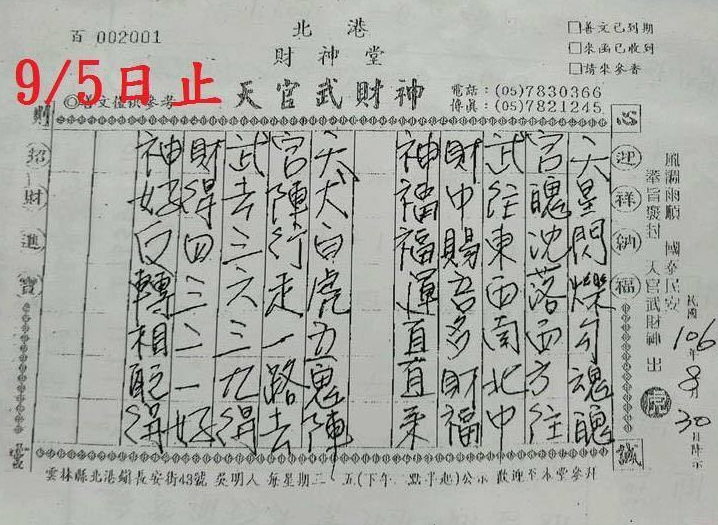 北港
財神堂
天官武財神
百 002001
9/5日止
◎善文僅供參考
□善文已到期
□來函已收到
□請來參香
電話：(05)7830366
傳真：(05)7821245
風調雨順 國泰民安
奉旨發封 天官武財神 出
民國106年8月30日
心
誠
迎祥納福
天星閃爍勾魂醜
宮醜沈落西方往
武往東西南北中
財中賜吾多財福
神福福運直直來
天犬白虎五鬼陣
宮陣行走一路去
武去三六三九得
財得四三二一好
神好回轉相配得
招財進寶
則
靈
雲林縣北港鎮長安街43號 吳明人 每星期二 五(下午 點半起)公示 歡迎至本堂參拜